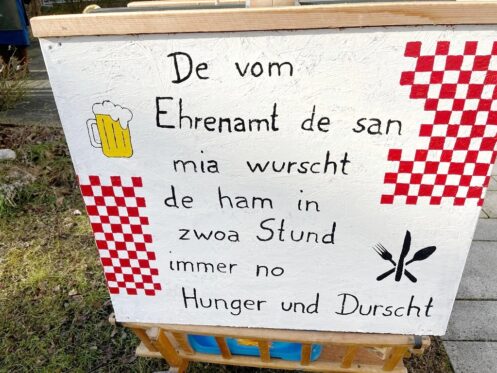 De vom
Ehrenamt de san
mia wurscht
de ham in
zwoa Stund
immer no
Hunger und Durscht